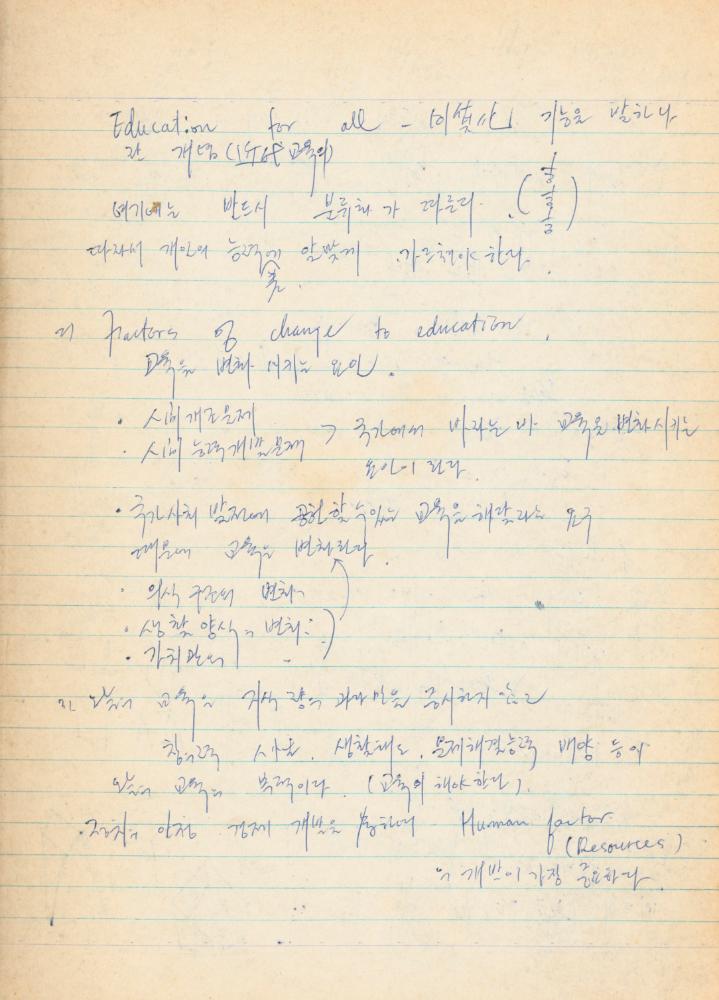 Education for all - 기능을 발하나
란 개념 (교육의)
여기에는 반드시 분류화가 따른다. (상 중 하)
따라서 개인의 능력에 알맞게 가르쳐야 한다.
2) Factors of change to education.
교육을 변화시키는 요인.
· 사회개조문제
· 사회 능력개발문제 > 국가에서 바라는 바 교육을 변화시키는
요인이 된다.
· 국가사회 발전에 공헌할 수 있는 교육을 해달라는 요구
때문에 교육은 변화된다.
· 의식 구조의 변화
· 생활양식의 변화
· 가치관의 -
3) 오늘의 교육은 지식량의 만을 중시하지 않고
창의력 사고, 생활태도, 문제해결능력 배양 등이
오늘의 교육의 목적이다. (교육이 해야 한다).
· 정치의 안정 경제 개발을 Human factor
(Resources)
의 개발이 가장 중요하다.